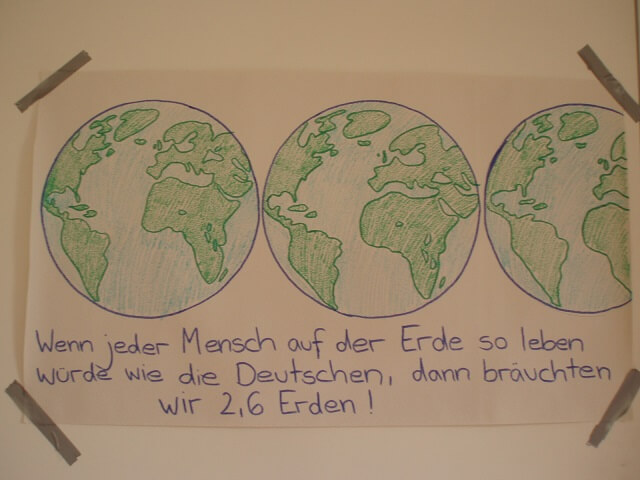 Wenn jeder Mensch auf der Erde so leben
würde wie die Deutschen, dann bräuchten
wir 2,6 Erden!